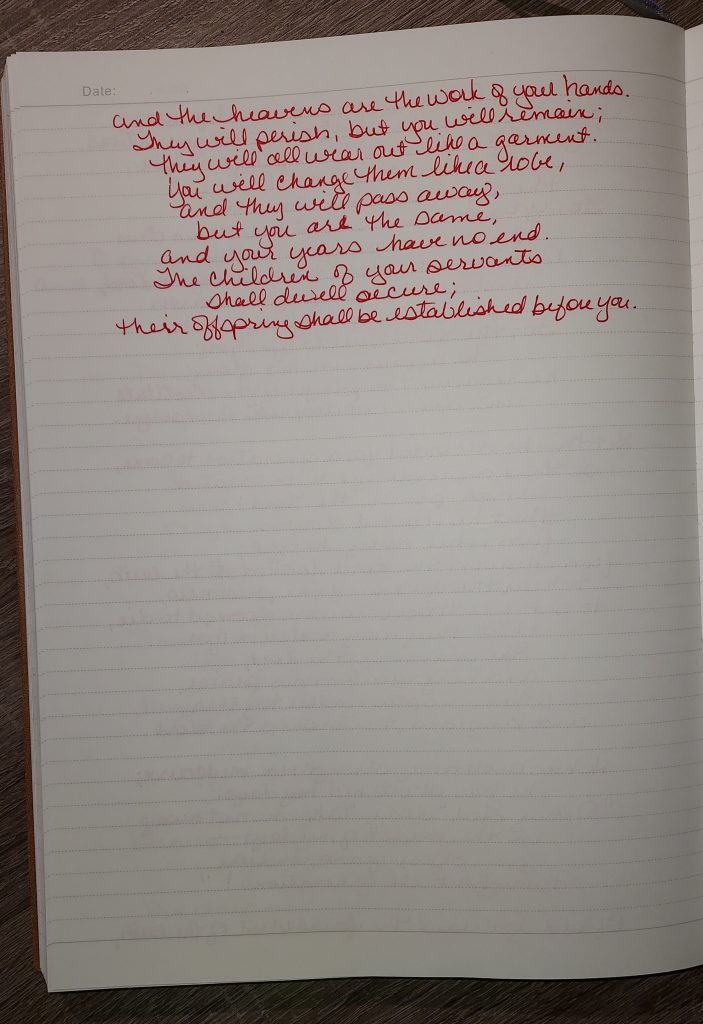 Date:
and the heavens are the work of your hands.
They will perish, but you will remain;
they will all wear out like a garment.
You will change them like a robe,
and they will pass away,
but you are the same,
and your years have no end.
The children of your servants
shall dwell secure;
their offspring shall be established before you.